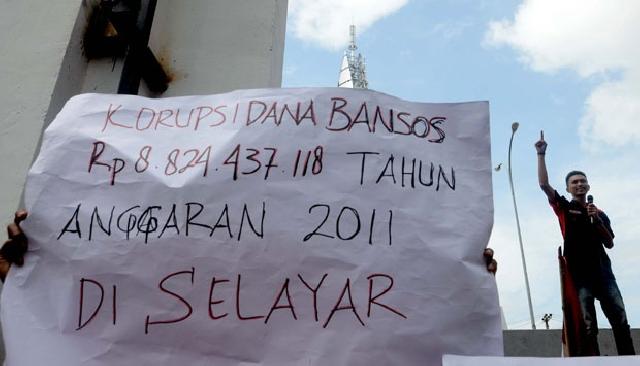 KORUPSI DANA BANSOS
Rp 8.824.437.118 TAHUN
ANGGARAN 2011
DI SELAYAR